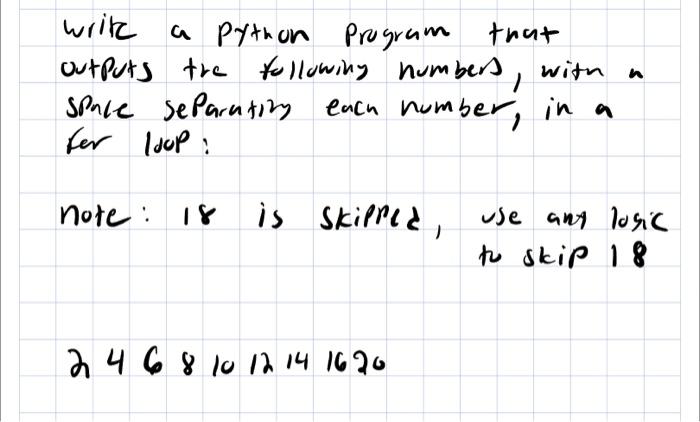 write a python program that
outputs the following numbers, with a
space separating each number, in a
for loop:
note: 18 is skipped, use any logic
to skip 18
2 4 6 8 10 12 14 16 20